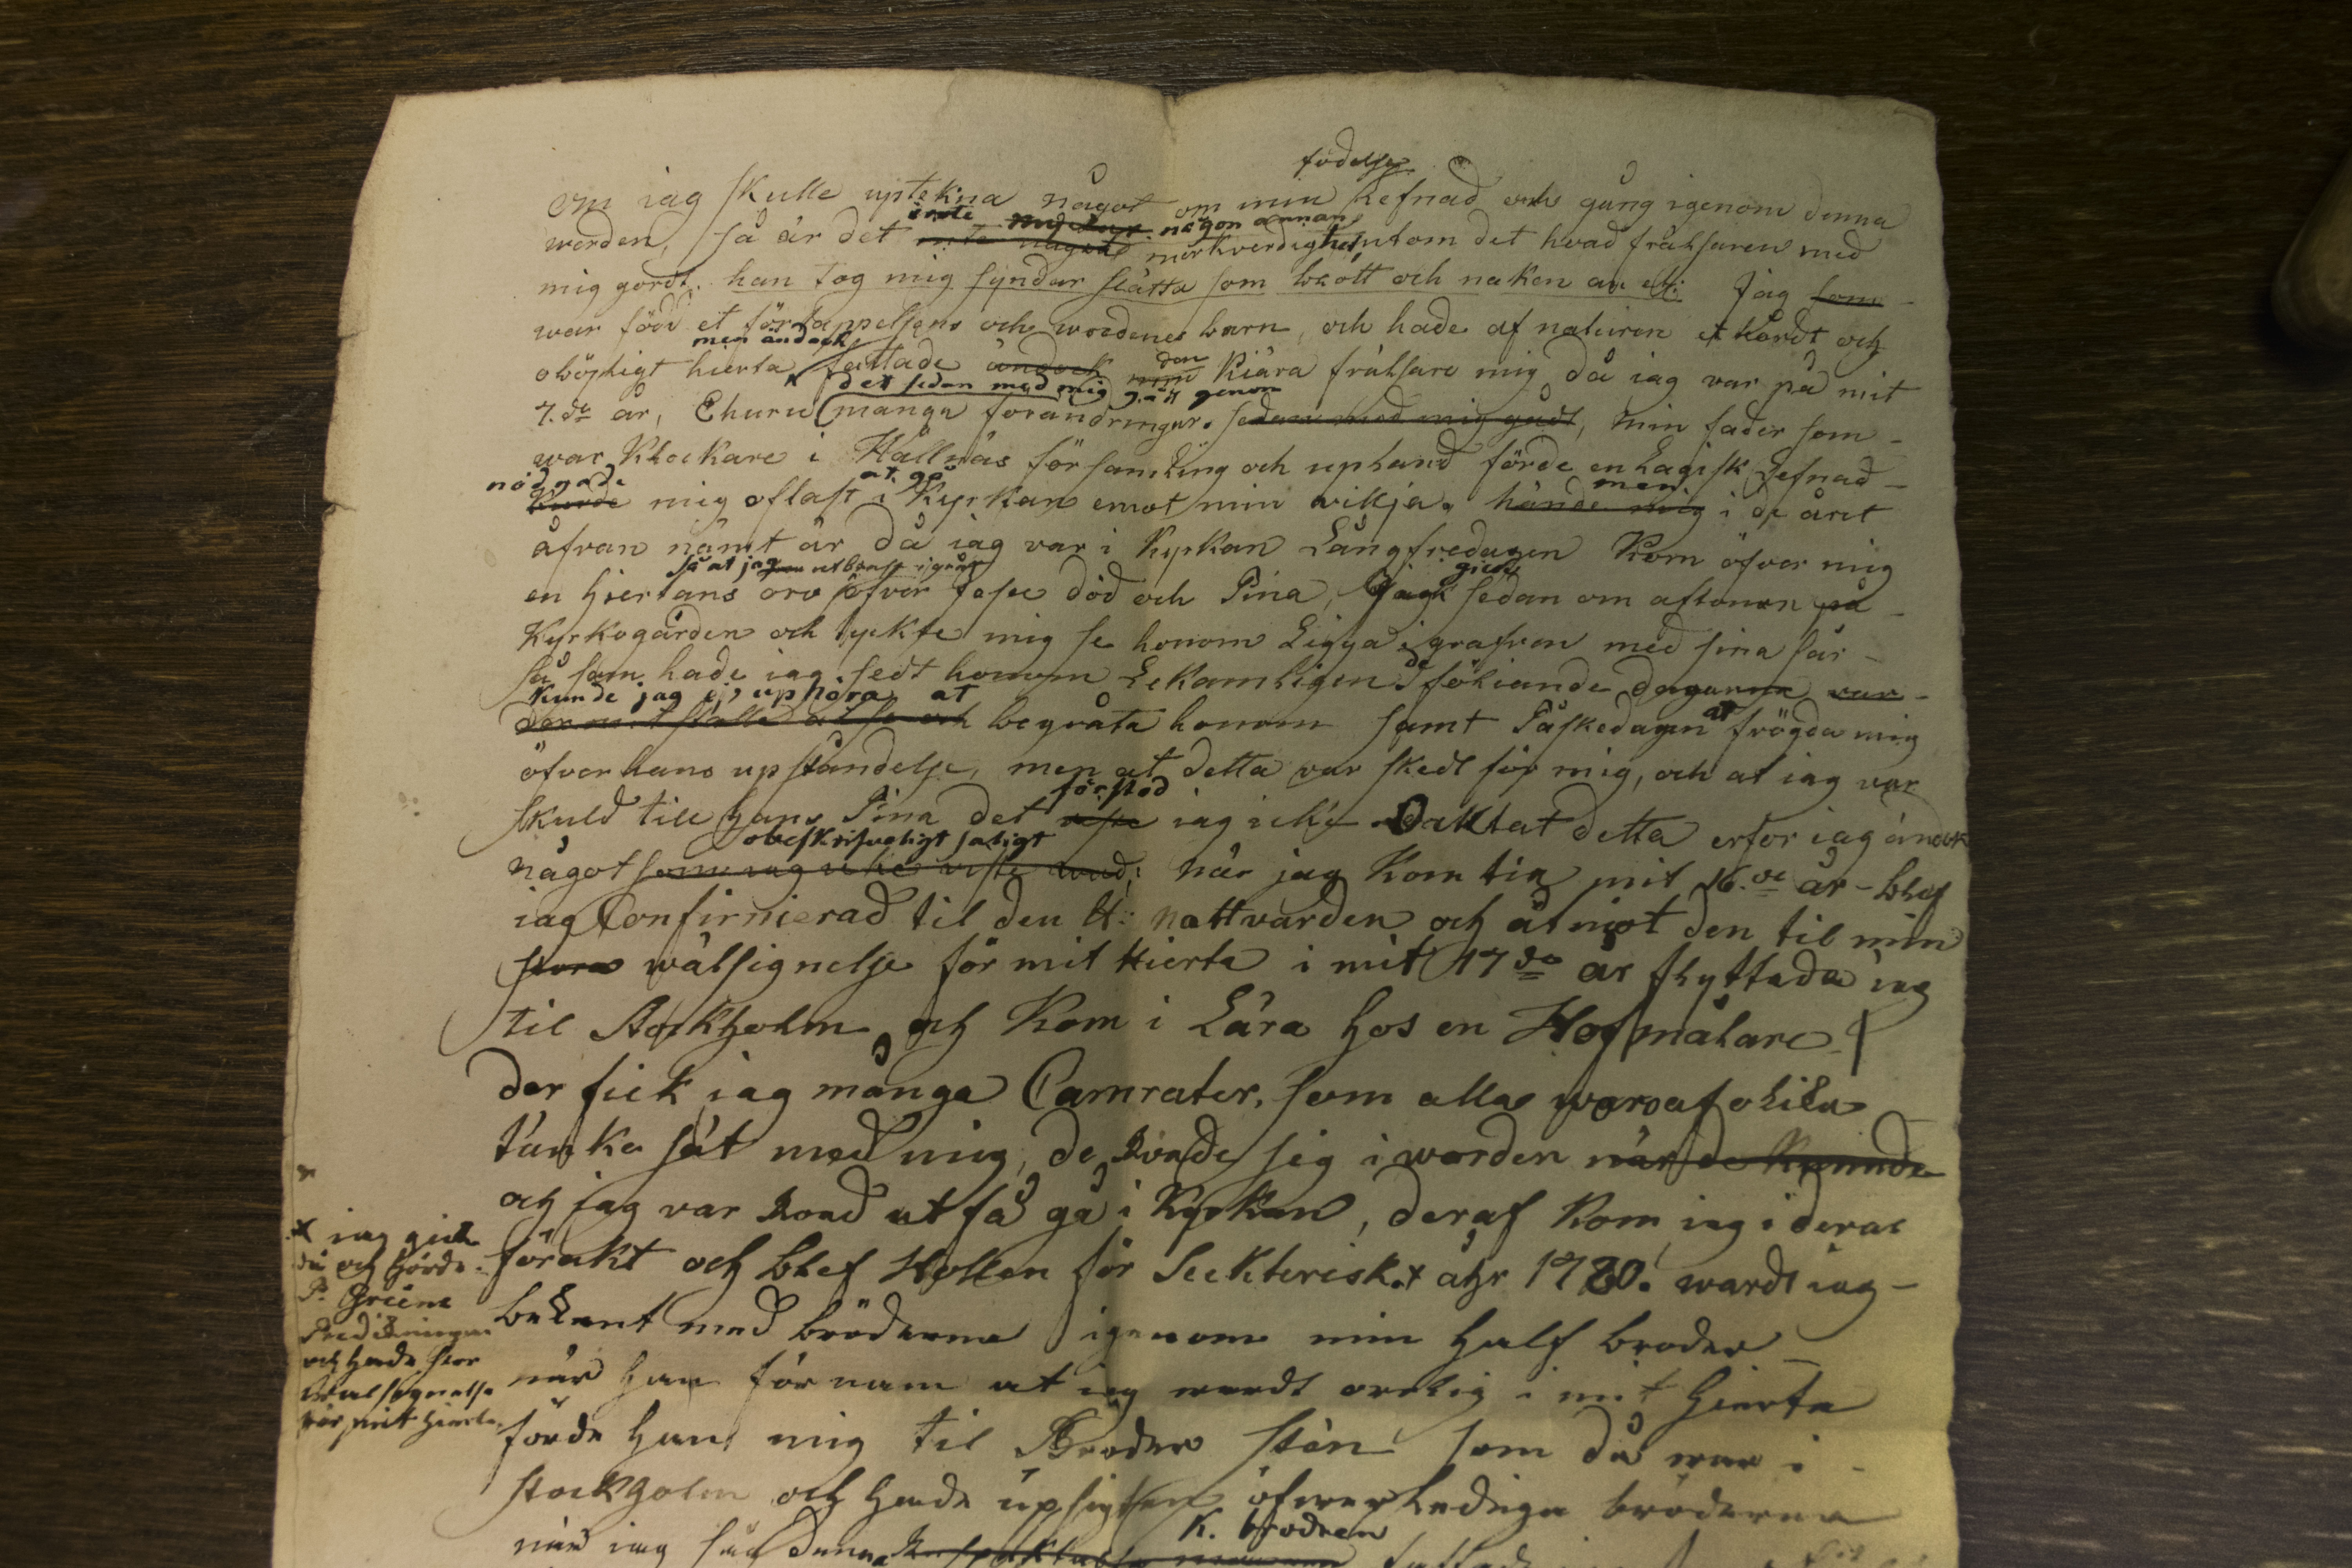 födelse
om iag skulle uptekna något om min Lefnad och gång igenom denna
werden, så är det inte någon annan merkverdighet, utom det hvad frälsaren med
mig gordt. han tog mig syndar slätta som blott och naken an etc: Jag som
war född et förtappelsens och wredenes barn, och hade af naturen et hårdt och
men ändock
oböjligt hierta fattade ändock den kiära frälsare mig då iag var på mit
det sedan med mig gått genom
7.de år, Ehuru många forändringar. sedan med mig gådt, min fader som
war Klockare i Hållnäs församling och upland förde en Lagisk Lefnad
nödgade at gå men
mig oftast i Kyrkan emot min vilja. hände mig i de året
åfvan nämt är då iag var i Kyrkan Långfredagen kom öfver mig
så at jag utbrast i gråt
en hiertans oro öfver Jesu död och Pina, gick sedan om aftonen på
Kyrkogården och tyckte mig se honom Ligga i grafven med sina sår
så som hade iag sedt honom Lekamligen föliande dagarna var
kunde jag ej uphöra at
begråta honom samt Påskedagen at frögda mig
öfver hans upståndelse, men at detta var skedt för mig, och at iag var
förstod
skuld till hans Pina det viste iag icke. Oaktat detta erfor iag ändock
obeskrifveligt saligt
något som iag icke viste wad; när jag kom till mit 16.de år blef
iag Confirmerad til den H: nattvarden och åtniöt den til min
stora wälsignelse för mit Hierta i mit 17de år flyttade iag
til Stockholm och kom i Lära hos en Hofmålare
der fick iag många Camrater, som alla woro af olika
tänkesät med mig, de roade sig i worden när de kunnde
och jag var road at få gå i Kyrkan, deraf kom iag i deras
förakt och blef Hollen för Seckterisk. x åhr 1780. wardt iag
bekant med bröderna igenom min half broder
när han förnam at iag wardt orolig i mit hierta
förde han mig til Broder Stån som då war i
Stockholm och hade upsigten öfwer Lediga bröderna
K. brodren
när iag såg denna
x iag gick
då och hörde
P. Greens
Predikningar
och hade stor
Wälsignelse
för mit hierta.